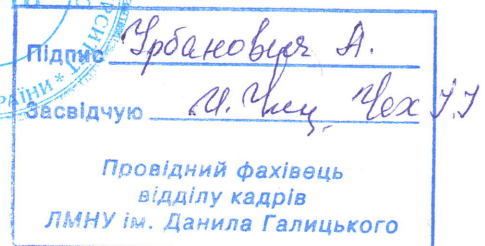 Підпис Урбанович А.
Засвідчую Чех І.І
Провідний фахівець
відділу кадрів
ЛМНУ ім. Данила Галицького